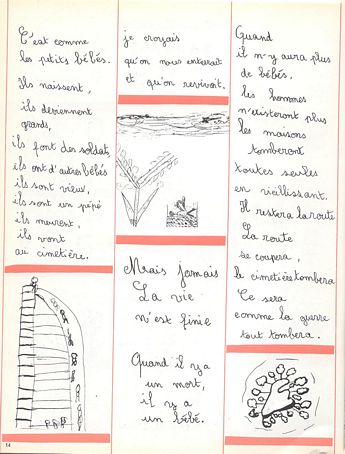 C'est comme
les petits bébés.
Ils naissent,
ils deviennent
grands,
ils font des soldats,
ils ont d'autres bébés
ils sont vieux,
ils sont un pépé
ils meurent,
ils vont
au cimetière.
je croyais
qu'on nous enterrait
et qu'on revivait.
Mais jamais
La vie
n'est finie
Quand il y a
un mort,
il y a
un bébé.
Quand
il n-y aura plus
de bébés,
les hommes
n'existeront plus
les maisons
tomberont
toutes seules
en vieillissant.
Il restera la route
La route
se coupera,
le cimetière tombera
Ce sera
comme la guerre
tout tombera.
14